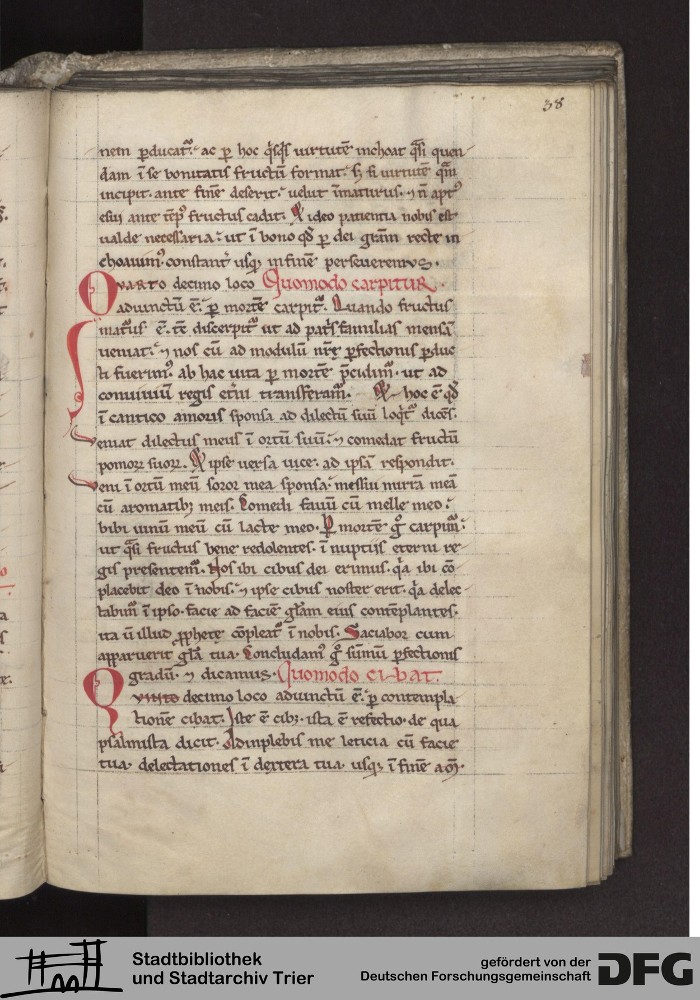 38
nem ꝑducat᷑. ac ꝑ hoc q̇sq̇s uirtutē inchoat q̃si quen
dam ĩ se bonitatis fructũ format. ſꝫ si uirtutē quã
incipit. ante finē deserit. uelut ĩmaturus. ⁊ ñ apt᷒
esui ante tẽp᷒ fructus cadit. Et ideo patientia nobis est
ualde necessaria. ut ĩ bono qđ ꝑ dei grãm recte in
choauim᷒. constant᷑ usqꝫ in finē perseueremus.
Quarto decimo loco Quomodo carpitur.
adiunctũ ē. ꝑ mortē carpit᷑. Quando fructus
matur᷒ ē. tē discerpit᷑ ut ad patrisfamilias mensã
ueniat. ⁊ nos cũ ad modulũ nr̃ę ꝑfectionis ꝑduc
ti fuerim᷒. ab hac uita ꝑ mortē p̃cidim᷑. ut ad
conuiuiũ regis et̃ni transferam᷑. Et hoc ē qđ
ĩ cantico amoris sponsa ad dilectũ suũ loq̇t᷑ dicẽs.
Veniat dilectus meus ĩ ortũ suũ. ⁊ comedat fructũ
pomoꝝ suoꝝ. Et ipse uersa uice. ad ipsã respondit.
Veni ĩ ortũ meũ soror mea sponsa. messui mirrã meã
cũ aromatibꝫ meis. Comedi fauũ cũ melle meo.
bibi uinũ meũ cũ lacte meo. Per mortē gͦ carpim᷑.
ut q̃si fructus bene redolentes. ĩ nuptiis eterni re
gis presentem᷑. Nos ibi cibus dei erimus. q̇a ibi cõ
placebit deo ĩ nobis. ⁊ ipse cibus noster erit. q̇a delec
tabim᷑ ĩ ipso. facie ad faciē gl̃am eius contẽplantes.
ita ũ illud ꝓphetę cõpleat᷑ ĩ nobis. Saciabor cum
apparuerit gl̃a tua. Concludam᷒ gͦ sũmũ ꝑfectionis
gradũ. ⁊ dicamus. Quomodo cibat.
Quinto decimo loco adiunctũ ē. ꝑ contempla
tionē cibat. Iste ē cibꝫ. ista ē refectio. de qua
psalmista dicit. Adimplebis me leticia cũ facie
tua. delectationes ĩ dextera tua. usqꝫ ĩ finē am̃.
Stadtbibliothek
und Stadtarchiv Trier
gefördert von der
Deutschen Forschungsgemeinschaft
DFG